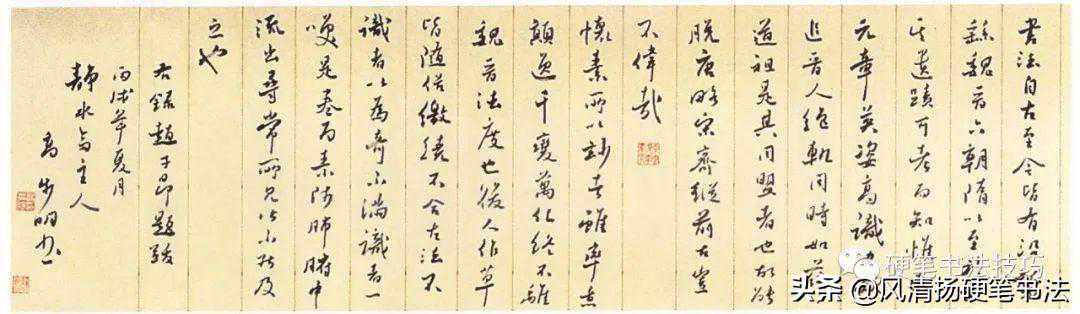 書法自古至今皆有沿
繇魏晉六朝隋以至
其遺蹟可考而知惟
元章英姿高識力
追晉人絶軌同時如薛
道祖是其同盟者也故能
脫唐略宋齊蹤前古豈
不偉哉
懷素所以妙者雖率意
顛逸千變萬化終不離
魏晉法度也後人作草
皆隨俗繳繞不合古法不
識者以為奇不滿識者一
笑是卷而素師肺腑中
流出尋常所見皆不能及
之也
右錄趙子昂題跋
丙戌年夏月
靜水主人
高步明書
硬笔书法技巧
头条@风清扬硬笔书法